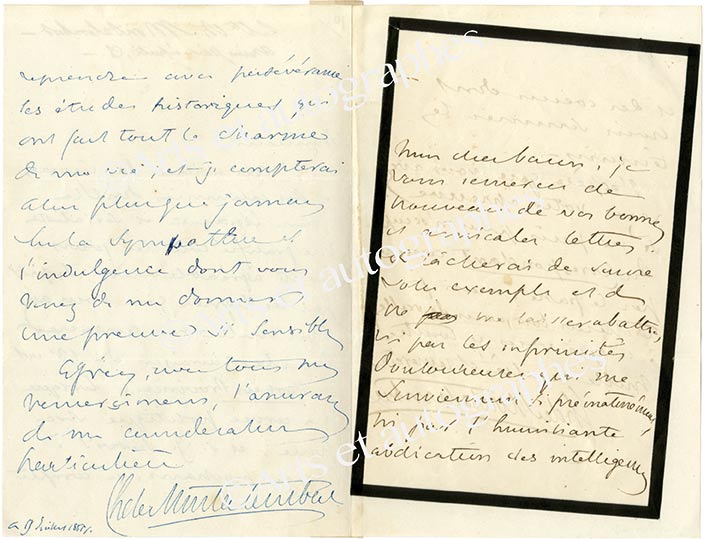 reprendre avec persévérance
les études historiques qui
ont fait tout le charme
de ma vie, et je compterai
alors plus que jamais
sur la sympathie et
l'indulgence dont vous
venez de me donner
une preuve si sensible
Agréez, avec tous mes
remercîmens, l'assurance
de ma considération
particulière
Ch de Montalembert
Mon cher baron, je
vous remercie de
nouveau de vos bonnes
et amicales lettres.
Je tâcherai de suivre
votre exemple et de
ne me laisser abattre,
ni par les infirmités
douloureuses qui me
surviennent si prématurément,
ni par l'humiliante
abdication des intelligences